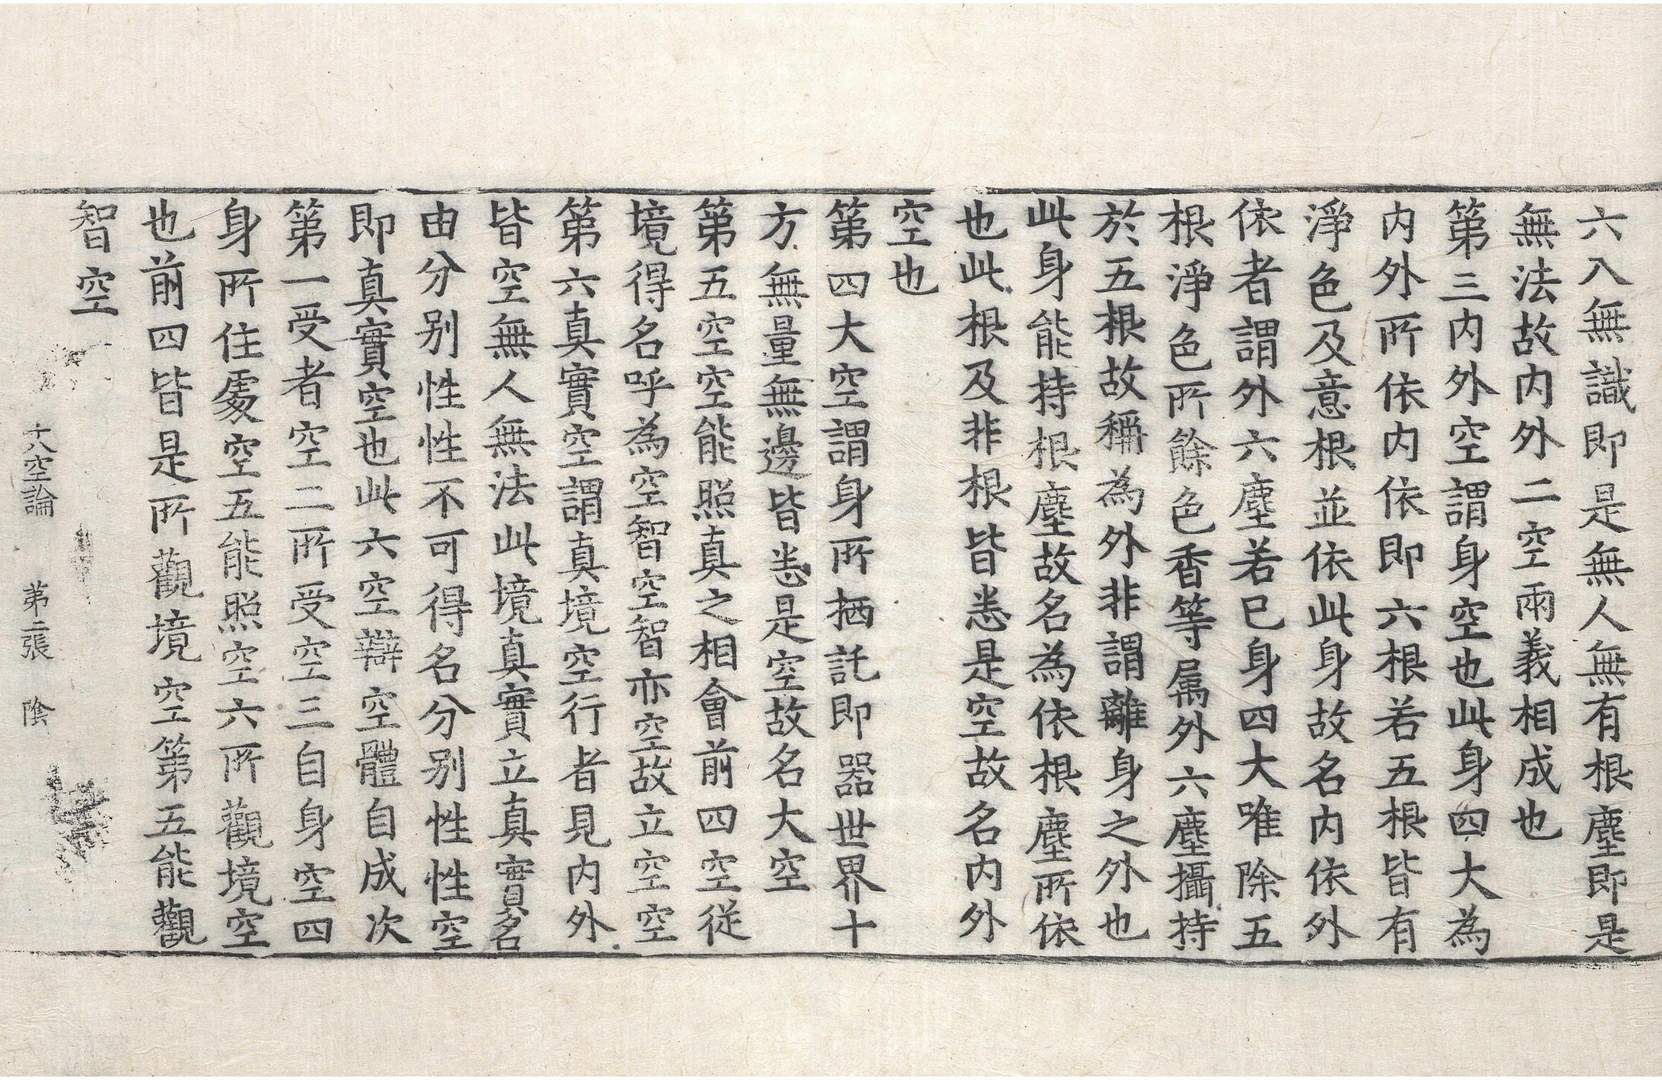 六入無識即是無人無有根塵即是
無法故内外二空兩義相成也
第三内外空謂身空也此身四大為
内外所依内依即六根若五根皆有
淨色及意根並依此身故名内依外
依者謂外六塵若已身四大唯除五
根淨色所餘色香等属外六塵攝持
於五根故稱為外非謂離身之外也
此身能持根塵故名為依根塵所依
也此根及非根皆悉是空故名内外
空也
第四大空謂身所栖託即器世界十
方無量無邊皆悉是空故名大空
第五空空能照真之相會前四空從
境得名呼為空智空智亦空故立空空
第六真實空謂真境空行者見内外
皆空無人無法此境真實立真實名
由分别性性不可得名分别性性空
即真實空也此六空辯空體自成次
第一受者空二所受空三自身空四
身所住處空五能照空六所觀境空
也前四皆是所觀境空第五能觀
智空
十八空論　第二張　陰